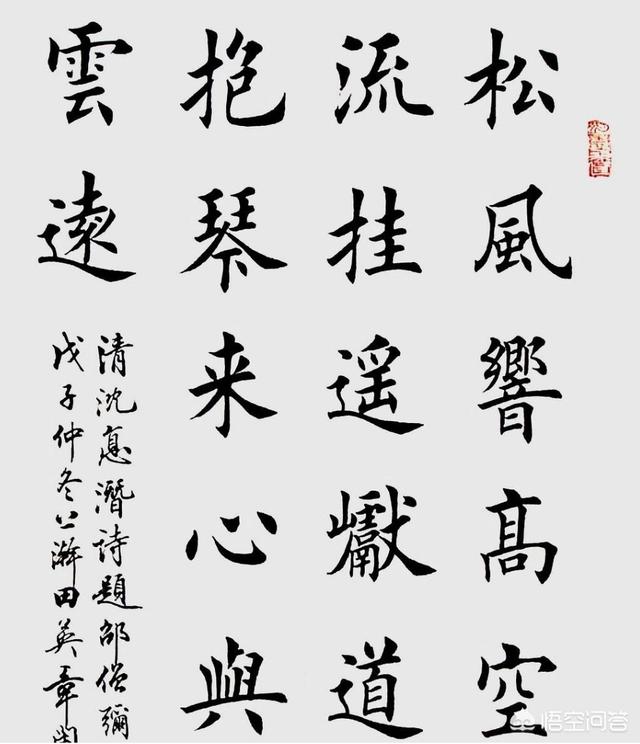 松風響髙空
流挂遥巘道
抱琴来心與
雲遠
清沈德潛詩題邵僧彌
戊子仲冬上澣田英章
悟空问答